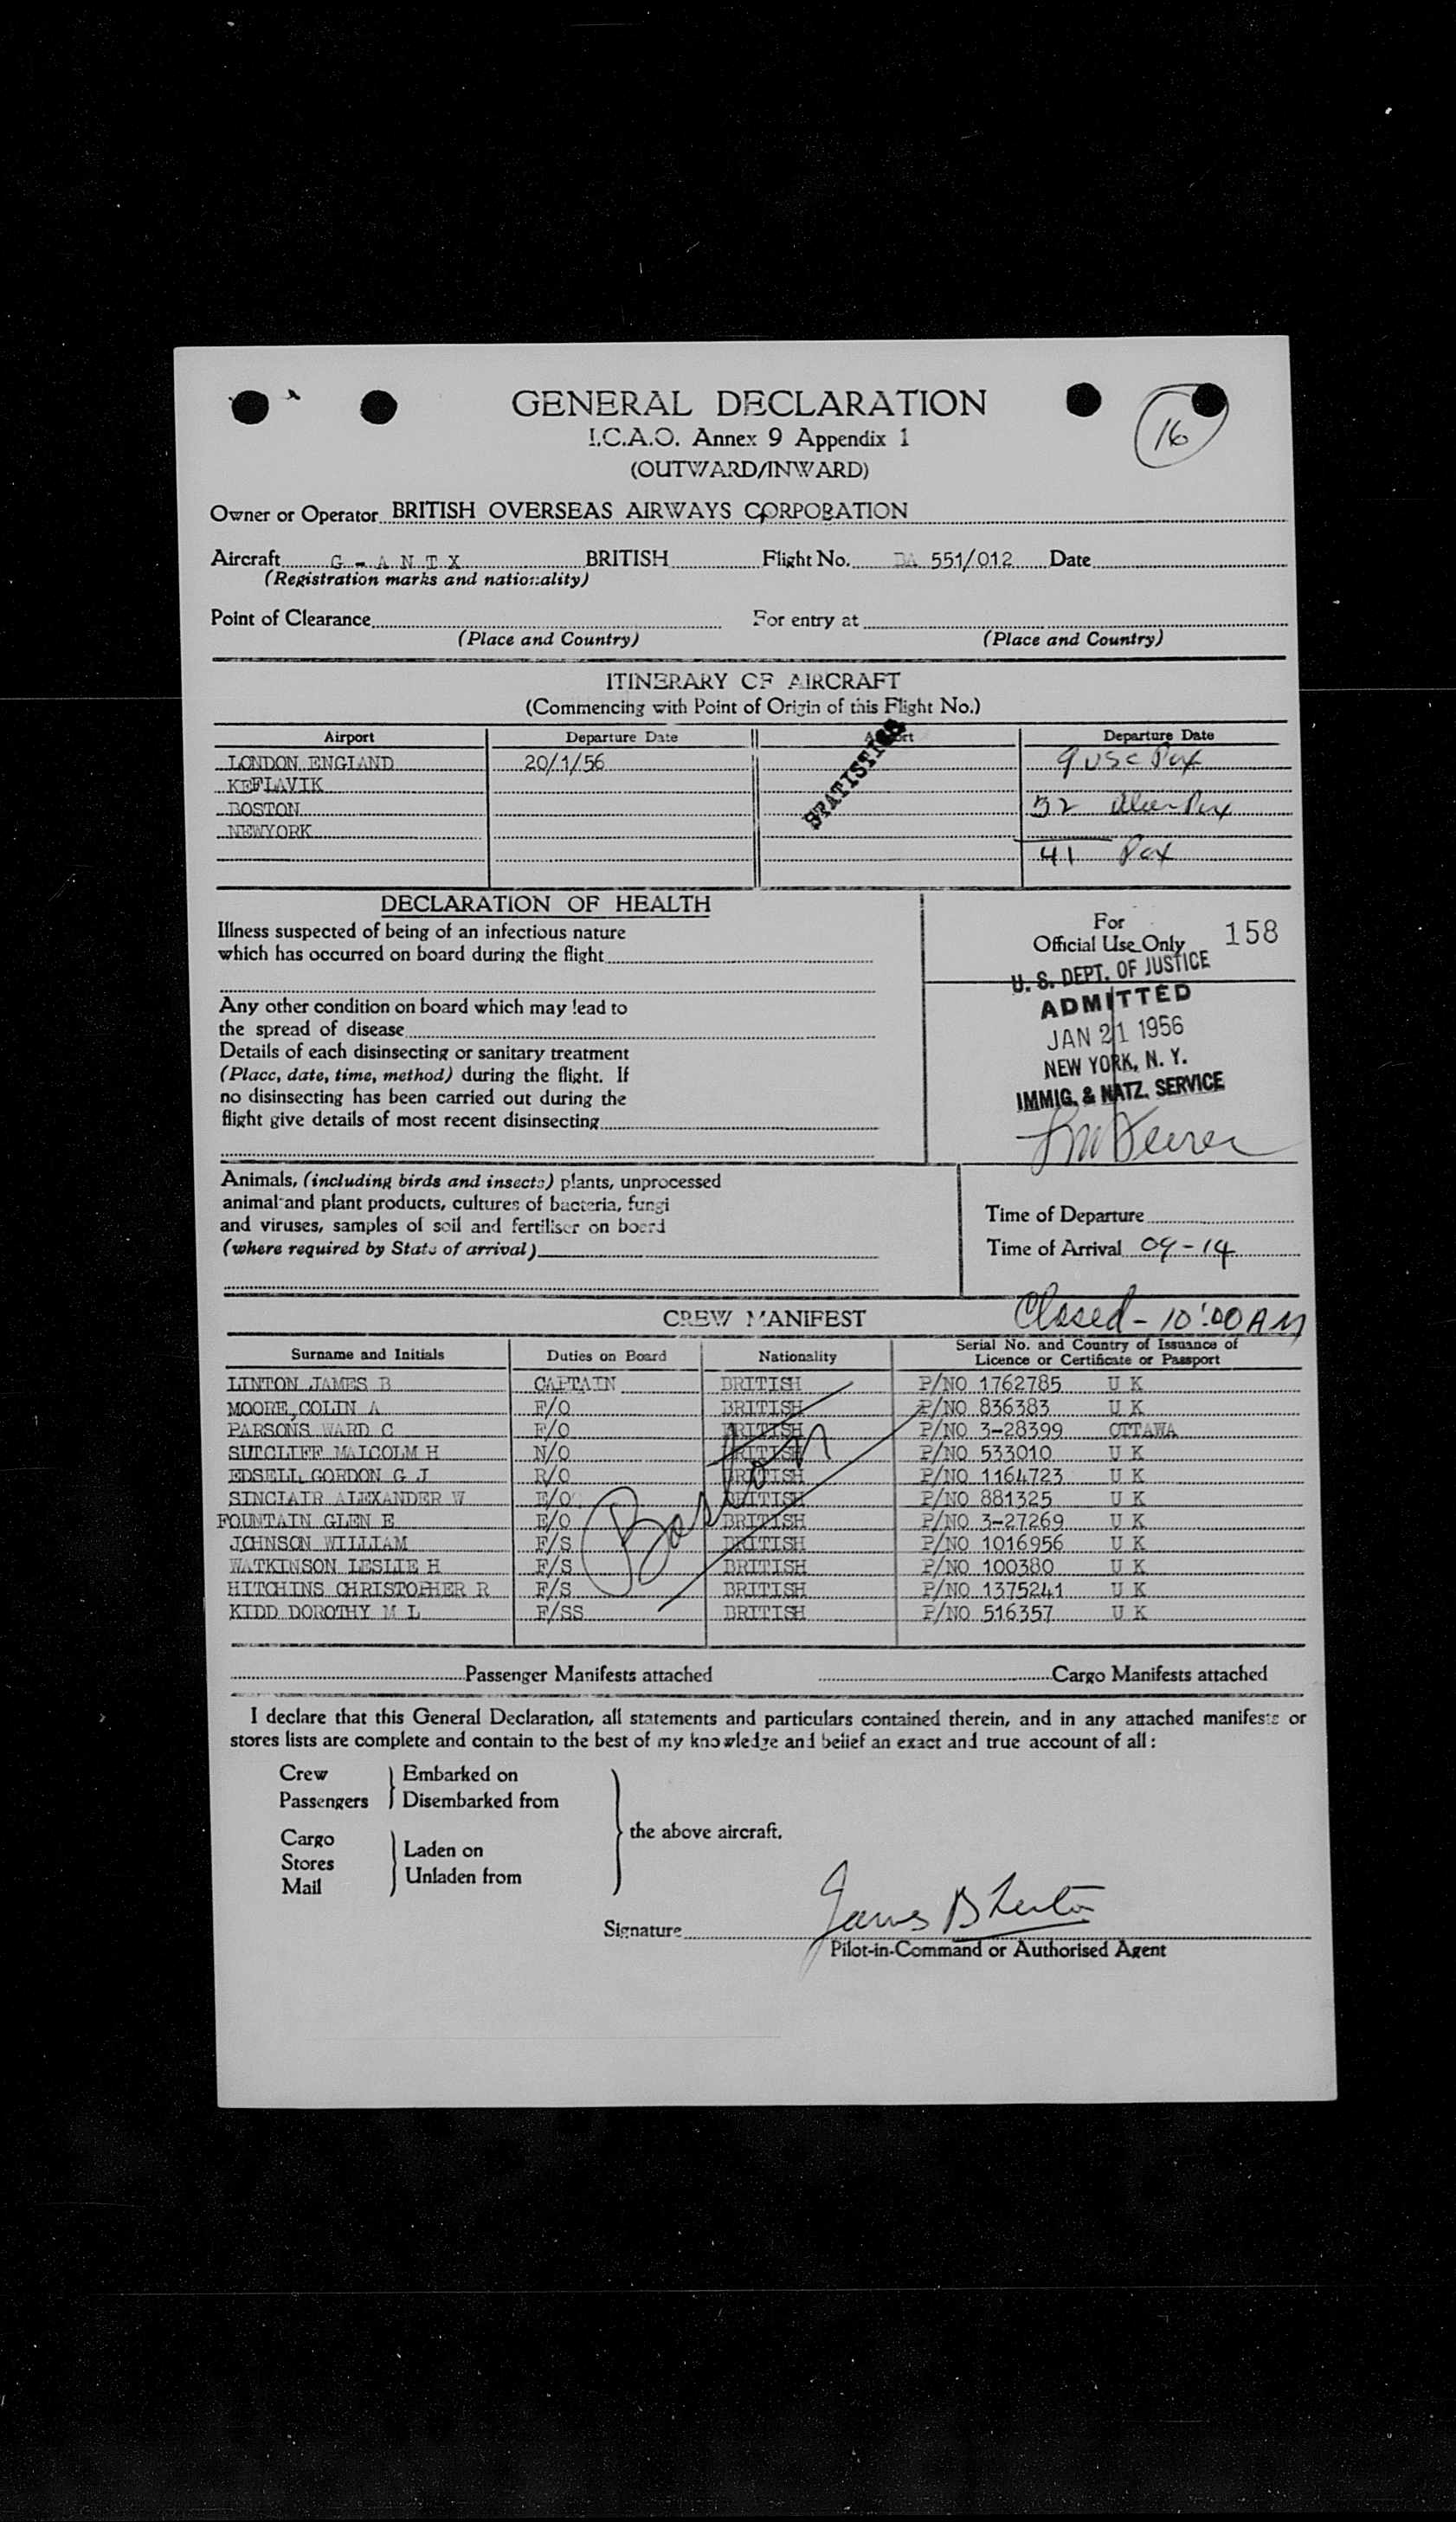 GENERAL DECLARATION
I.C.A.O. Annex 9 Appendix 1
(OUTWARD/INWARD)
16
Owner or Operator BRITISH OVERSEAS AIRWAYS CORPORATION
Aircraft G - A N T X BRITISH Flight No. BA 551/012 Date
(Registration marks and nationality)
Point of Clearance For entry at
(Place and Country) (Place and Country)
ITINERARY OF AIRCRAFT
(Commencing with Point of Origin of this Flight No.)
Airport Departure Date Airport Departure Date
STATISTICS
LONDON ENGLAND 20/1/56 9 USC Pax
KEFLAVIK
BOSTON 32 Alien Pax
NEWYORK
41 Pax
DECLARATION OF HEALTH
Illness suspected of being of an infectious nature
which has occurred on board during the flight
Any other condition on board which may lead to
the spread of disease
Details of each disinsecting or sanitary treatment
(Place, date, time, method) during the flight. If
no disinsecting has been carried out during the
flight give details of most recent disinsecting
For
Official Use Only 158
U. S. DEPT. OF JUSTICE
ADMITTED
JAN 21 1956
NEW YORK, N. Y.
IMMIG. & NATZ. SERVICE
Animals, (including birds and insects) plants, unprocessed
animal and plant products, cultures of bacteria, fungi
and viruses, samples of soil and fertiliser on board
(where required by State of arrival)
Time of Departure
Time of Arrival 09-14
Closed - 10:00 AM
CREW MANIFEST
Surname and Initials Duties on Board Nationality Serial No. and Country of Issuance of
Licence or Certificate or Passport
LINTON JAMES B CAPTAIN BRITISH P/NO 1762785 U K
MOORE, COLIN A F/O BRITISH P/NO 836383 U K
PARSONS WARD C F/O BRITISH P/NO 3-28399 OTTAWA
SUTCLIFF MALCOLM H N/O BRITISH P/NO 533010 U K
EDSELL GORDON G J R/O BRITISH P/NO 1164723 U K
SINCLAIR ALEXANDER W E/O BRITISH P/NO 881325 U K
FOUNTAIN GLEN E E/O BRITISH P/NO 3-27269 U K
JOHNSON WILLIAM F/S BRITISH P/NO 1016956 U K
WATKINSON LESLIE H F/S BRITISH P/NO 100380 U K
HITCHINS CHRISTOPHER R F/S BRITISH P/NO 1375241 U K
KIDD DOROTHY M L F/SS BRITISH P/NO 516357 U K
Boston
Passenger Manifests attached Cargo Manifests attached
I declare that this General Declaration, all statements and particulars contained therein, and in any attached manifests or
stores lists are complete and contain to the best of my knowledge and belief an exact and true account of all :
Crew Embarked on
Passengers Disembarked from
the above aircraft.
Cargo Laden on
Stores
Unladen from
Mail
Signature James B Linton
Pilot-in-Command or Authorised Agent